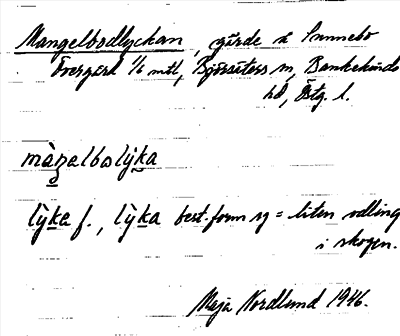 Mangelbodlyckan, gärde i Sunnebo
Övergård 1/6 mtl, Björsäters sn, Bankekinds
hd, Östg. l.
màŋelbolỳka
lỳka f., lỳka best. form sg = liten odling
i skogen.
Maja Nordlund 1946.